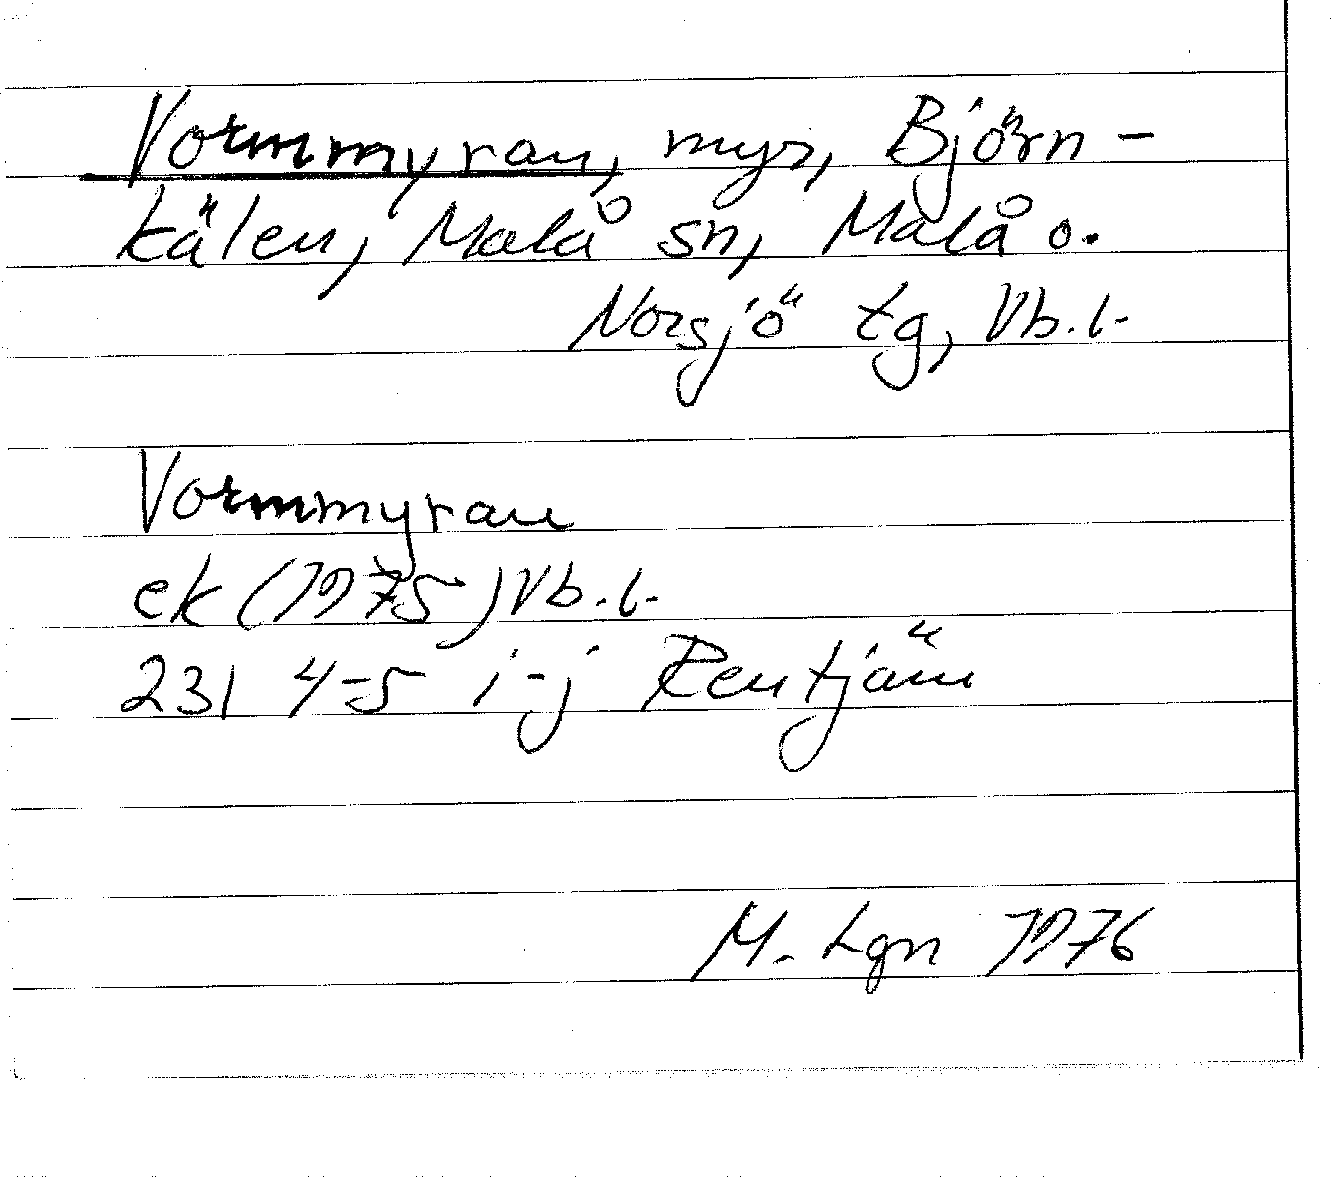 Vormmyran, myr, Björn-
kälen, Malå sn, Malå o.
Norsjö tg, Vb.l.
Vormmyran
ek (1975) Vb.l.
231 4-5 i-j Rentjärn
M. Lgn 1976